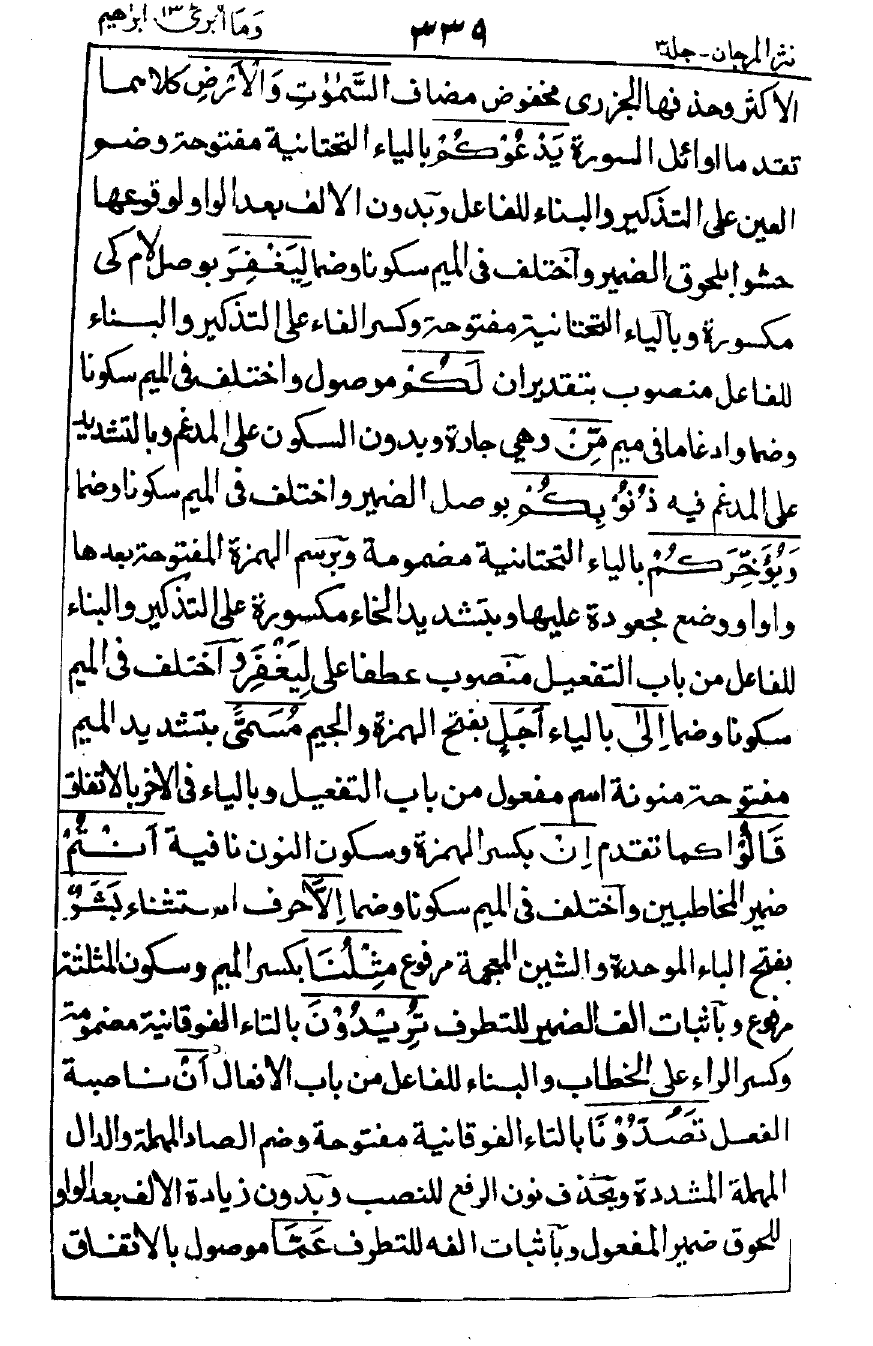 نثر المرجان - جلد ٣ ٣٣٩ وما أبرئ ١٣ ابراهيم
الاكثر وحذفها الجزرى مخفوض مضاف السَّمٰوٰتِ وَالْاَرْضِ كلاهما
تقدما اوائل السورة يَدْعُوْكُمْ بالياء التحتانية مفتوحة وضم
العين على التذكير والبناء للفاعل وبدون الالف بعد الواو لوقوعها
حشوا بلحوق الضمير واختلف فى الميم سكونا وضما لِيَغْفِرَ بوصل لام كى
مكسورة وبالياء التحتانية مفتوحة وكسر الفاء على التذكير والبناء
للفاعل منصوب بتقدير ان لَكُمْ موصول واختلف فى الميم سكونا
وضما وادغاما فى ميم مِّنْ وهي جارة وبدون السكون على المدغم وبالتشديد
على المدغم فيه ذُنُوْبِكُمْ بوصل الضمير واختلف فى الميم سكونا وضما
وَيُؤَخِّرَكُمْ بالياء التحتانية مضمومة وبرسم الهمزة المفتوحة بعدها
واوا ووضع مجعودة عليها وبتشديد الخاء مكسورة على التذكير والبناء
للفاعل من باب التفعيل منصوب عطفا على لِيَغْفِرَ واختلف فى الميم
سكونا وضما اِلٰى بالياء اَجَلٍ بفتح الهمزة والجيم مُسَمًّى بتشديد الميم
مفتوحة منونة اسم مفعول من باب التفعيل وبالياء فى الاخر بالاتفاق
قَالُوْا كما تقدم اِنْ بكسر الهمزة وسكون النون نافية اَنْتُمْ
ضمير المخاطبين واختلف فى الميم سكونا وضما اِلَّا حرف استثناء بَشَرٌ
بفتح الباء الموحدة والشين المعجمة مرفوع مِثْلُنَا بكسر الميم وسكون المثلثة
مرفوع وباثبات الف الضمير للتطرف تُرِيْدُوْنَ بالتاء الفوقانية مضمومة
وكسر الراء على الخطاب والبناء للفاعل من باب الافعال اَنْ ناصبة
الفعل تَصُدُّوْنَا بالتاء الفوقانية مفتوحة وضم الصاد المهملة والدال
المهملة المشددة وبحذف نون الرفع للنصب وبدون زيادة الالف بعد الواو
للحوق ضمير المفعول وباثبات الفه للتطرف عَمَّا موصول بالاتفاق